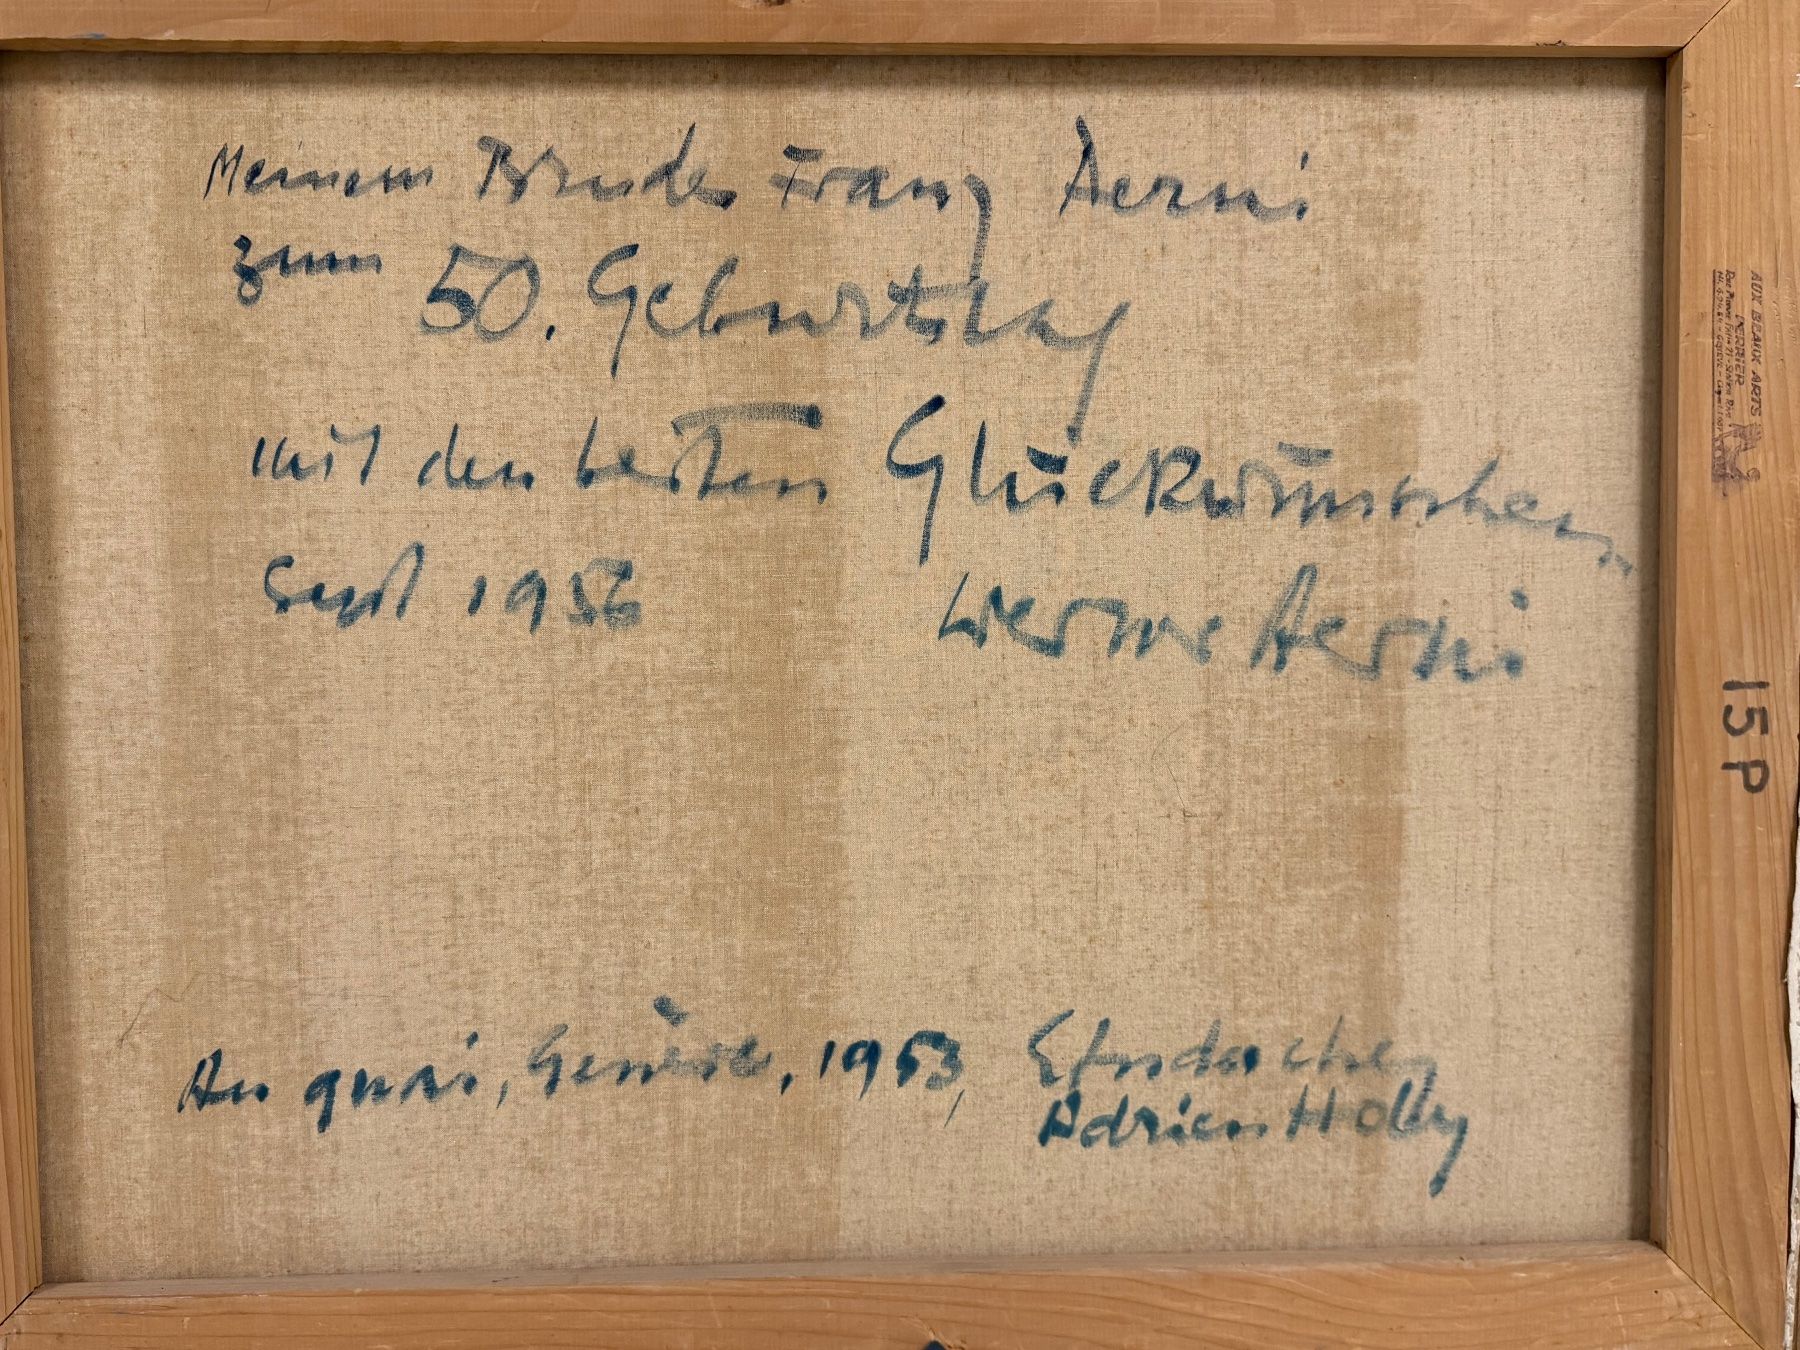 Meinem Bruder Franz Aerni
zum 50. Geburtstag
mit den besten Glückwünschen
Sept 1956 Werner Aerni
Au quai, Genève, 1953,
Adrien Holly
AUX BEAUX ARTS
PERRIER
15 P